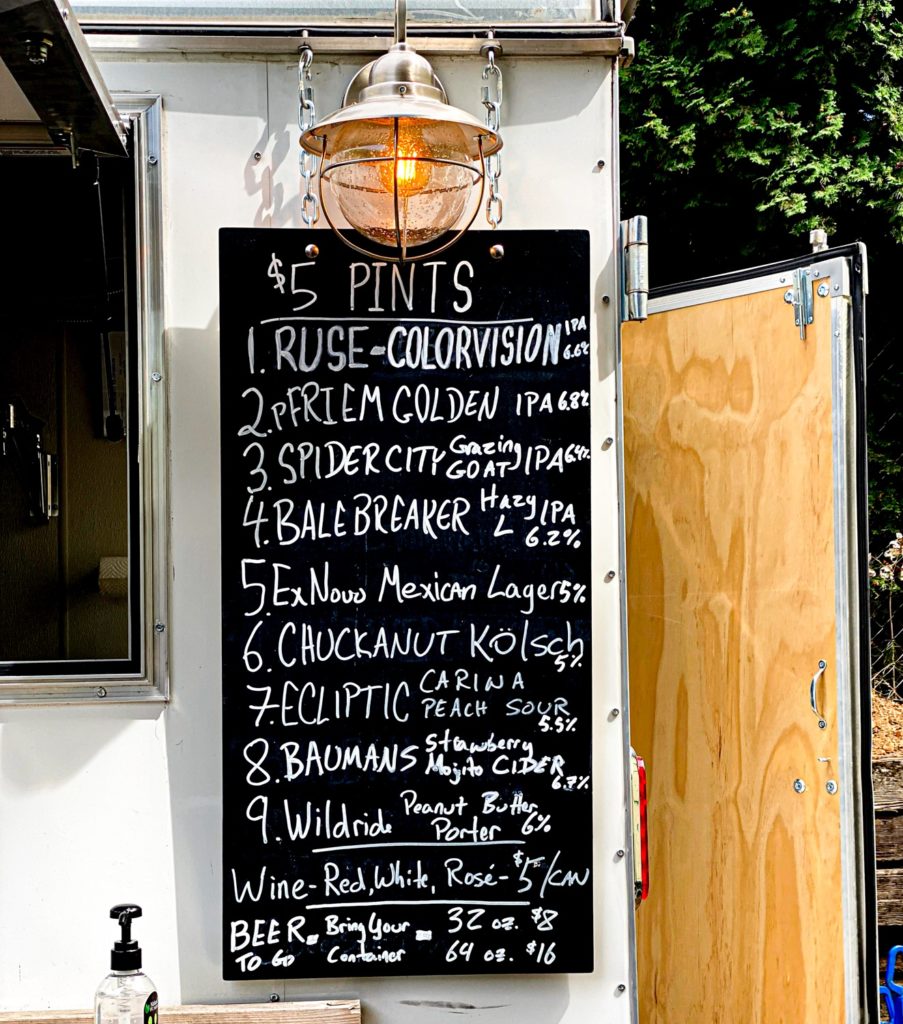 $5 PINTS
1. RUSE-COLORVISION IPA 6.6%
2. PFRIEM GOLDEN IPA 6.8%
3. SPIDERCITY Grazing GOAT IPA 6.4%
4. BALEBREAKER Hazy L IPA 6.2%
5. ExNovo Mexican Lager 5%
6. CHUCKANUT Kölsch 5%
7. ECLIPTIC CARINA PEACH SOUR 5.5%
8. BAUMANS Strawberry Mojito CIDER 6.7%
9. Wildride Peanut Butter Porter 6%
Wine-Red, White, Rosé-$5/CAN
BEER TO GO - Bring Your Container - 32 oz. $8
64 oz. $16